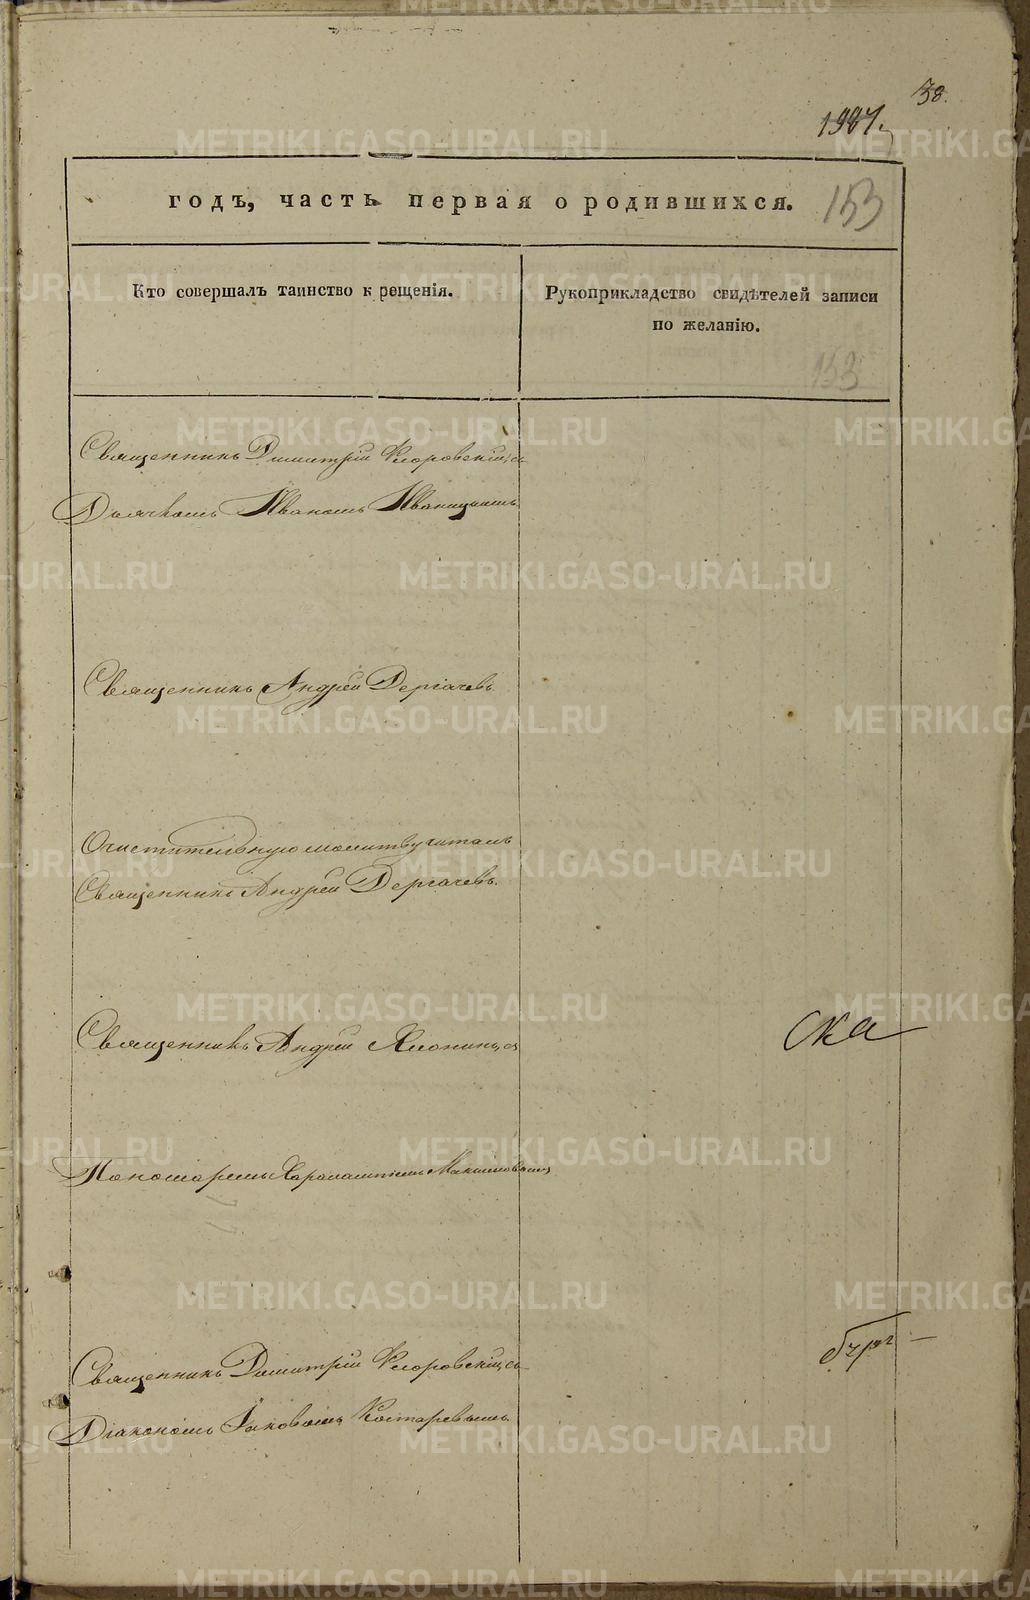 38.
годъ, часть первая о родившихся. 153
Кто совершалъ таинство крещенія.
Рукоприкладство свидѣтелей записи
по желанію.
153
Священникъ Димитрій Флоровскій, съ
Дьячкомъ Иваномъ
Священникъ Андрей Дергачевъ
Очистительную молитву читалъ
Священникъ Андрей Дергачевъ.
Священникъ Андрей съ
Пономаремъ Харалампіемъ
Священникъ Димитрій Флоровскій, съ
Діакономъ Іаковомъ Костаревымъ
METRIKI.GASO-URAL.RU